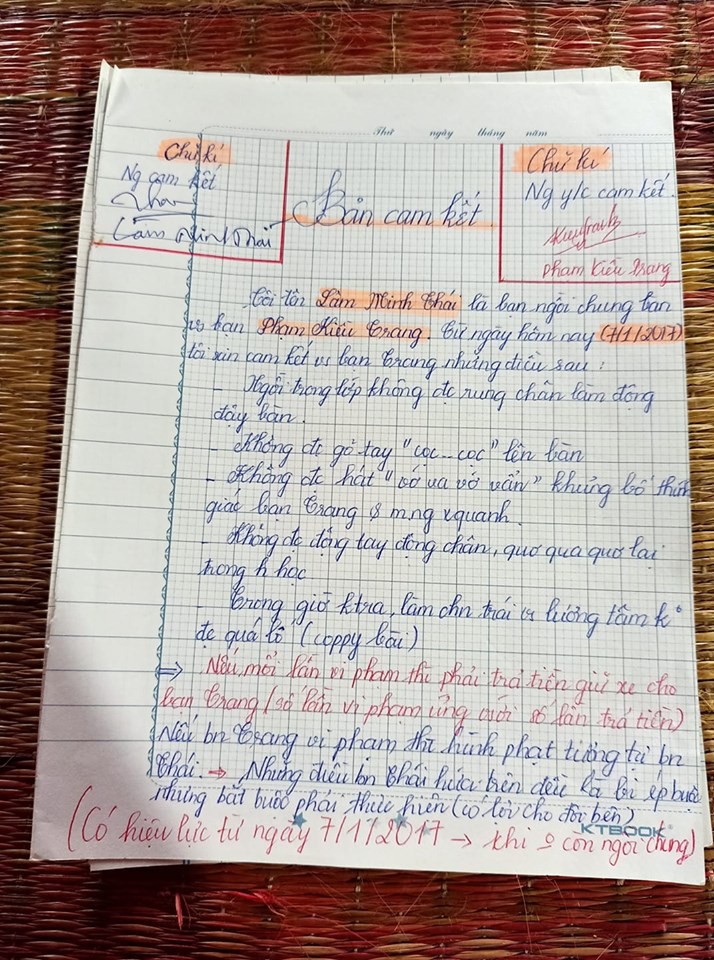 Thứ ngày tháng năm
Chữ kí
Ng cam kết
Lâm Minh Thái
Bản cam kết
Chữ kí
Ng y/c cam kết.
Phạm Kiều Trang
Tôi tên Lâm Minh Thái là bạn ngồi chung bàn
vs bạn Phạm Kiều Trang. Từ ngày hôm nay (7/1/2017)
tôi xin cam kết vs bạn Trang những điều sau:
- Ngồi trong lớp không đc rung chân làm động
đậy bàn.
- Không đc gõ tay "cọc...cọc" lên bàn
- Không đc hát "vớ va vớ vẩn" khủng bố thính
giác bạn Trang & m.ng xquanh.
- Không đc động tay động chân, quơ qua quơ lại
trong h học
- Trong giờ ktra, làm chn trái vs lương tâm k°
đc quá lố (coppy bài)
⇒ Nếu, mỗi lần vi phạm thì phải trả tiền giữ xe cho
bạn Trang (số lần vi phạm ứng với số lần trả tiền)
Nếu bn Trang vi phạm thì hình phạt tương tự bn
Thái. → Những điều bn Thái hứa trên đều là bị ép buộc
nhưng bắt buộc phải thực hiện (có lời cho đôi bên)
KTBOOK
(Có hiệu lực từ ngày 7/1/2017 → khi còn ngồi chung)